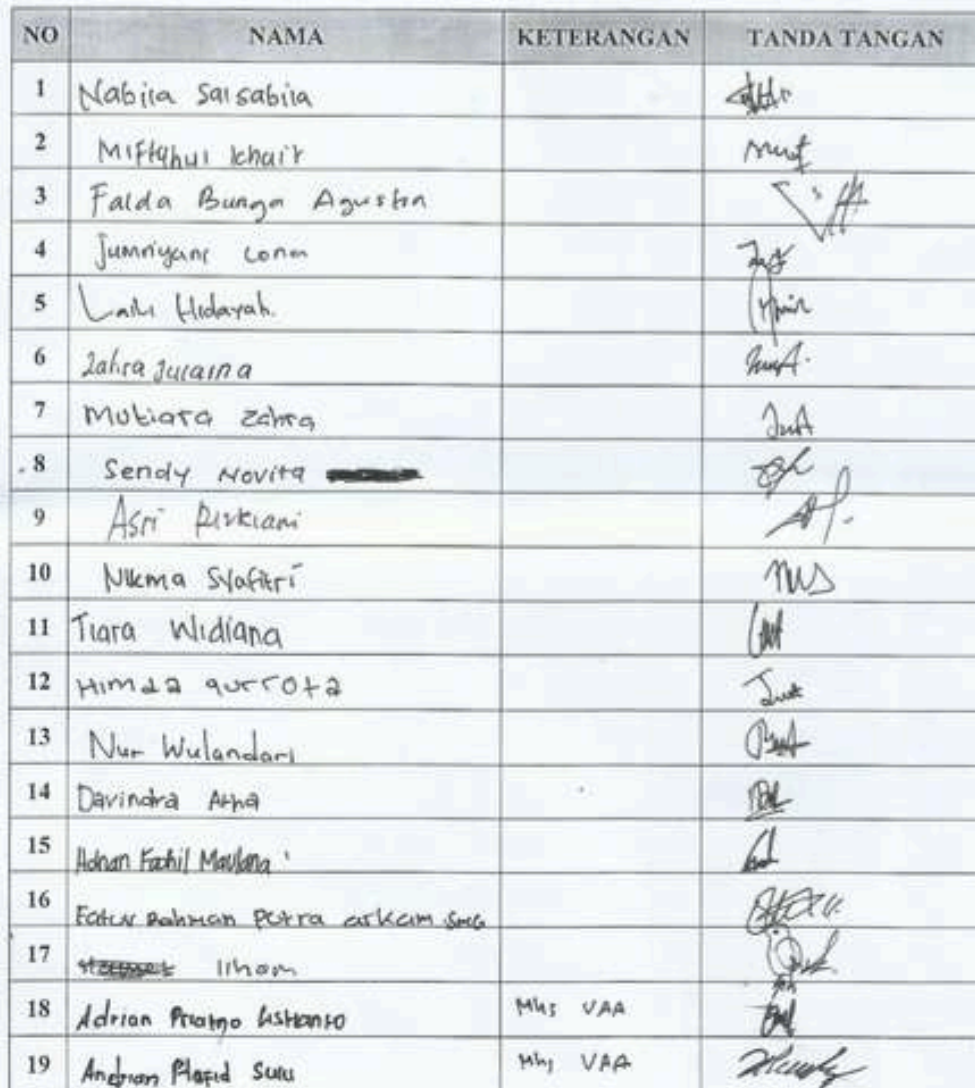 NO NAMA KETERANGAN TANDA TANGAN
1 Nabila Salsabila
2 Miftahul Khair
3 Falda Bunga Agustin
4 Jumriyani
5 Laili Hidayah.
6 Zahra Juraina
7 Mutiara Zahra
8 Sendy Novita
9 Asri Rizkiani
10 Nikma Syafitri
11 Tiara Widiana
12 Himda qurrota
13 Nur Wulandari
14 Davindra Atha
15 Adnan Fadhil Maulana
16 Fatur Rahman Putra arkam
17 Ilham
18 Adrian Mhs VAA
19 Andrian Sulu Mhs VAA